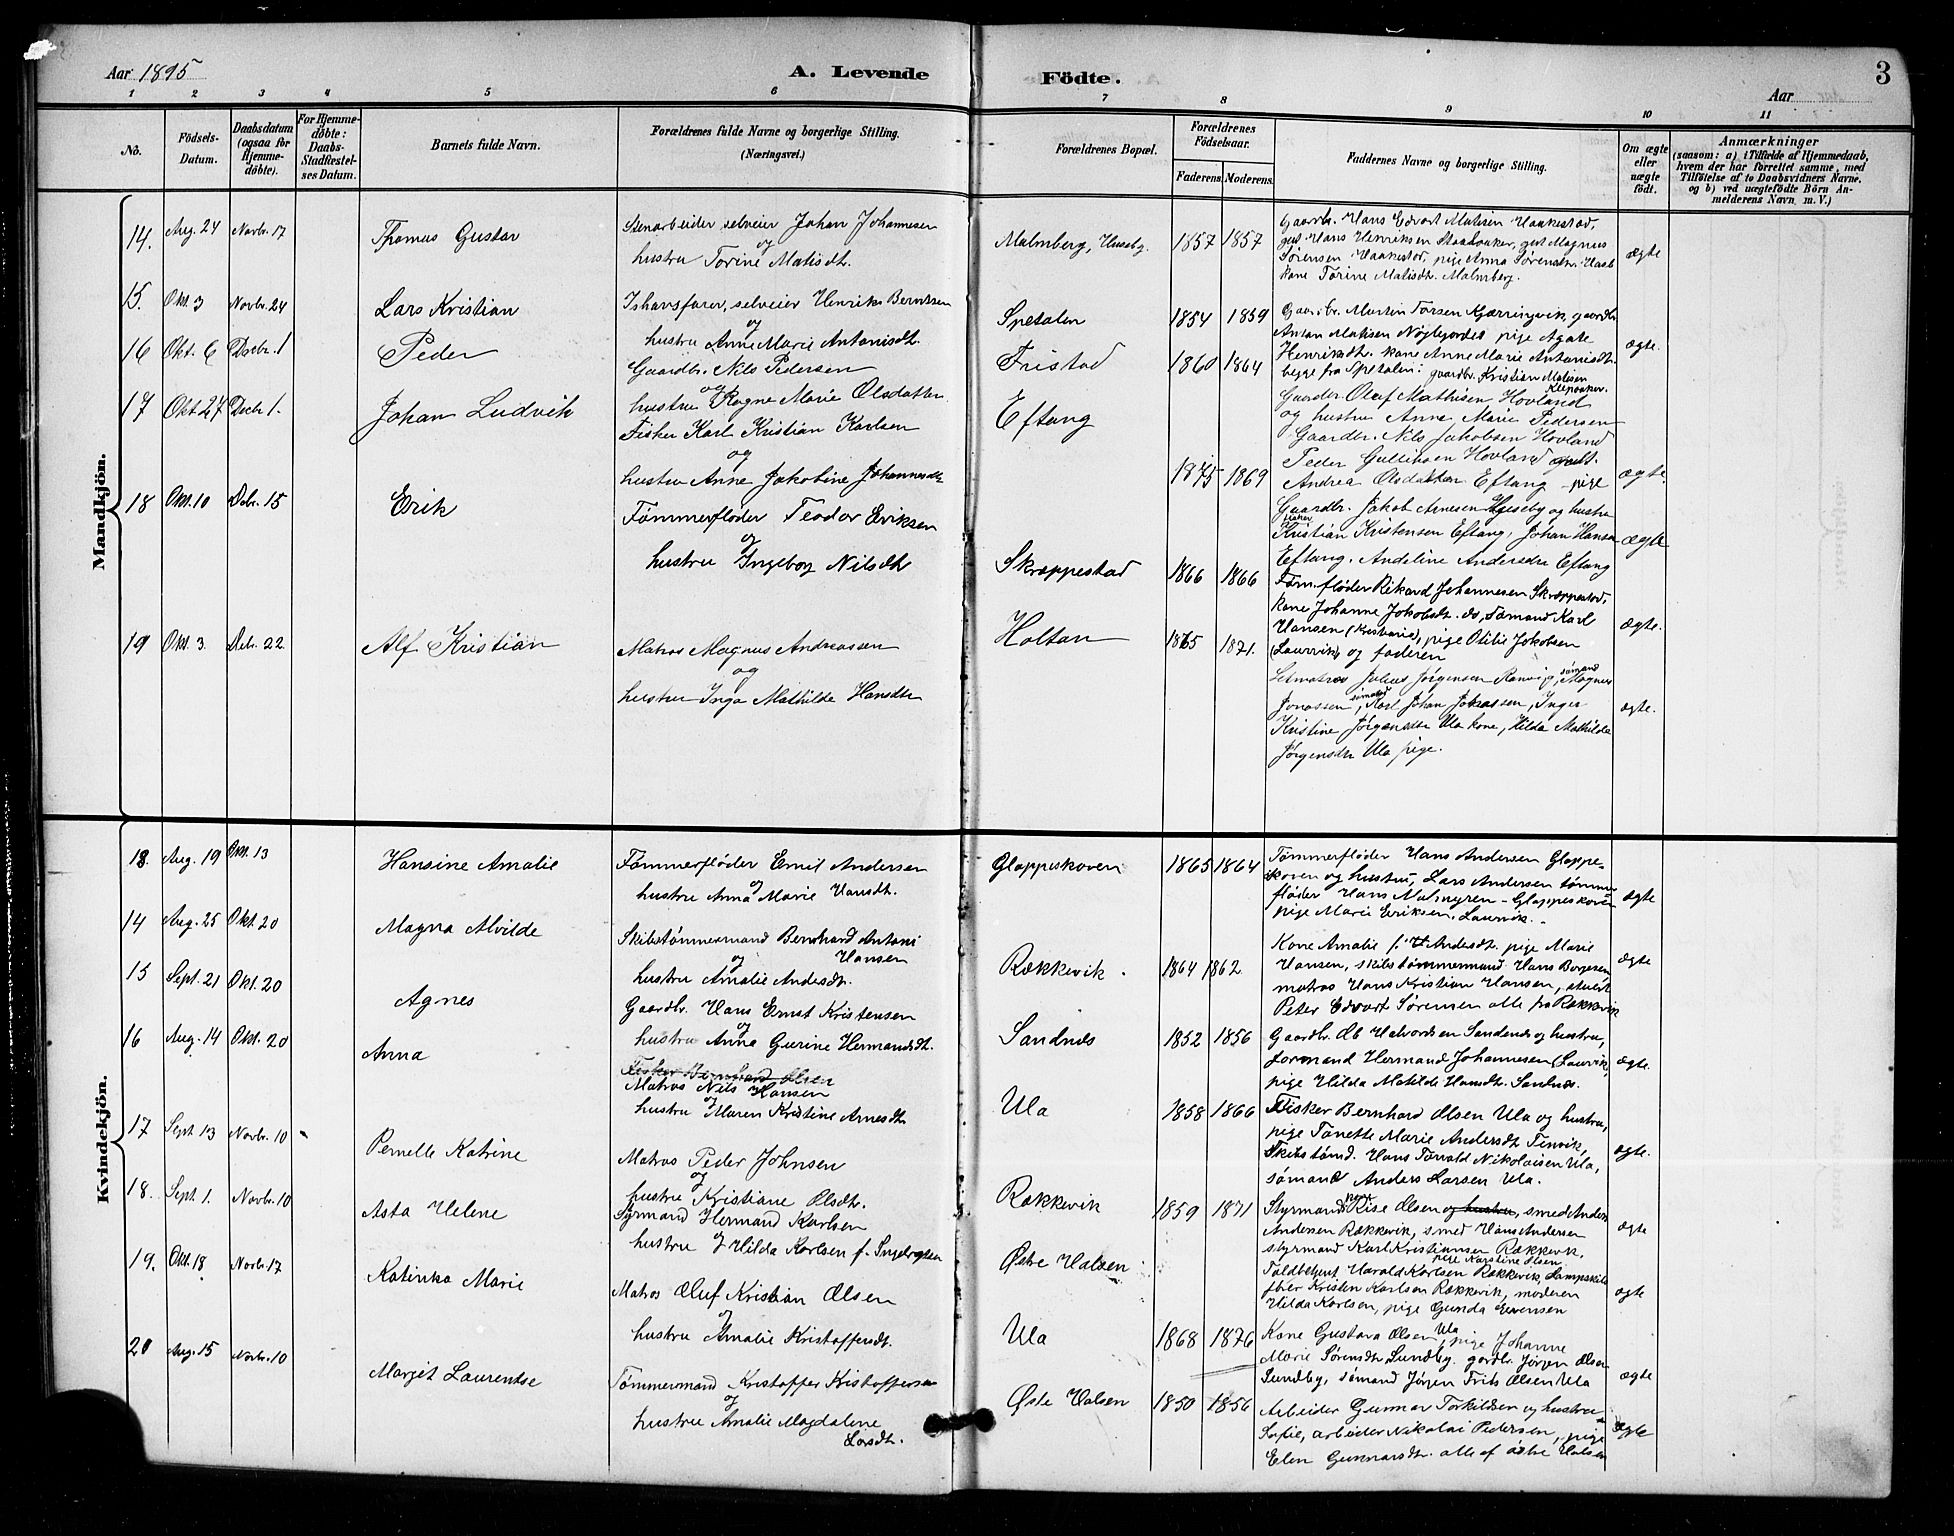 Aar 1895
A. Levende
Födte.
Aar
3
1 2 3 4 5 6 7 8 9 10 11
No.
Födsels-Datum.
Daabsdatum (ogsaa for Hjemme-døbte).
For Hjemme-døbte: Daabs-Stadfæstel-ses Datum.
Barnets fulde Navn.
Forældrenes fulde Navne og borgerlige Stilling.
(Næringsvei.)
Forældrenes Bopæl.
Forældrenes Födselsaar.
Faderens. Moderens.
Faddernes Navne og borgerlige Stilling.
Om ægte eller uægte födt.
Anmærkninger
(saasom: a) i Tilfælde af Hjemmedaab,
hvem der har forrettet samme, med
Tilföielse af to Daabsvidners Navne.
og b) ved uægtefödte Börn An-
melderens Navn, m. V.)
Mandkjön.
14. Aug. 24 Novbr. 17 Thomas Gustav
Stenarbeider selveier Johan Johannesen
og
hustru Torine Matisdt.
Malmberg, Huseby. 1857 1857
Gaardbr. Hans Edvart Matisen Haakestad,
gut Hans Henriksen Staavaker, gut Magnus
Sørensen Haakestad, pige Anna Sørensdtr.
kone Torine Matisdt. Malmberg.
ægte
15. Okt. 3 Novbr. 24 Lars Kristian
Ishavsfarer, selveier Henrik Berntsen
og
hustru Anne Marie Antonisdt.
Spetalen 1854 1859
Gaardbr. Martin Torsen Gjærringvik, gaardbr.
Antan Matisen Nøglegordet pige Agate
Henriksdtr. kone Anne Marie Antonisdt.
begge fra Spetalen: gaardbr. Kristian Matisen
Klepaaker.
ægte.
16 Okt. 6 Decbr. 1 Peder
Gaardbr. Nils Pedersen
og
hustru Ragne Marie Olsdatter
Fristad 1860 1864
Gaardbr Olaf Mathisen Hovland
og hustru Anne Marie Pedersen
Gaardbr. Nils Jakobsen Hovland
Peder Gulliksen Hovland
Andrea Olsdatter Eftang pige
ægte.
17 Okt 27 Decbr 1. Johan Ludvik
Fisker Karl Kristian Karlsen
og
hustru Anne Jakobine Johannesdtr
Eftang
1875 1869
Gaardbr. Jakob Arnesen Hueseby og hustru
fisker
Kristian Kristensen Eftang, Johan Hansen
Eftang. Andeline Andersdtr Eftang
ægte
18 Okt. 10 Debr. 15 Erik
Tømmerfløder Teodor Eriksen
og
hustru Ingeborg Nilsdtr
Skræppestad 1866 1866
Tøm.fløder Rikard Johannesen Skræppestad,
kone Johanne Jokobsdt. do, Sømand Karl
Hansen (Kristiania), pige Otilie Jokobsen
(Laurvik) og faderen
ægte.
19 Okt. 3. Debr. 22 Alf Kristian
Matros Magnus Andreassen
og
hustru Inga Mathilde Hansdtr
Holtan 1865 1871.
Julius Jørgensen Ranvig, sømand Magnus
Jonassen, sømand Karl Johan Jokassen, Inger
Kristine Jørgensdtr Ula kone, Hilda Mathilda
Jørgensdtr Ula pige.
ægte.
Kvindekjön.
13. Aug. 19 Okt. 13 Hansine Amalie
Tømmerfløder Emil Andersen
og
hustru Anna Marie Hansdt.
Gloppeskoven 1865 1864
Tømmerfløder Hans Andersen Gloppe-
skoven og hustru, Lars Andersen tømmer
fløder Hans Malmgren - Gloppeskoven
pige Marie Eriksen, Laurvik.
ægte
14 Aug. 25 Okt 20 Magna Alvilde
Skibstømmermand Bernhard Antoni
Hansen
og
hustru Amalie Andersdt.
Rækkevik. 1864 1862
Kone Amalie Andersdt. pige Marie
Hansen, skibstømmermand Hans Borgersen
matros Hans Kristian Hansen, stuert
Peter Edvart Sørensen alle fra Rækkevik
ægte
15 Sept. 21 Okt. 20 Agnes
Gaardbr. Hans Ernst Kristensen
og
hustru Anna Gurine Hermansdt.
Sandnæs 1852 1856
Gaardbr. Ole Halvordsen Sandnæs og hustru,
formand Hermand Johannesen (Laurvik,
pige Hilda Matilde Hansdt. Sandnæs.
ægte.
16 Aug. 14 Okt. 20 Anna
Fisker Bernhard Olsen
Matros Nils Hansen
og
hustru Maren Kristine Arnesdt
Ula 1858 1866
Fisker Bernhard Olsen Ula og hustru,
pige Tonette Marie Andersdt Tenvik,
Skibstømd. Hans Torvald Nikolaisen Ula,
sømand Anders Larsen Ula.
ægte.
17 Sept 13 Novbr. 10 Pernelle Katrine
Matros Peder Johnsen
og
hustru Kristiane Olsdt.
Rækkevik 1859 1871
Styrmand Kise Olsen og hustru, smed Anders
Andersen Rækkevik, smed Hans Andersen
styrmand Karl Kristiansen Rækkevik,
pige Karstine Olsen.
ægte
18. Sept 1. Novbr. 10 Asta Helene
Styrmand Hermand Karlsen
og
hustru Hilda Karlsen f. Ingebrigtsen
Østre Halsen
Toldbetjent Harald Karlsen Rækkevik, Lampskibs
fører Kristen Karlsen Rækkevik, moderen
Hilda Karlsen, pige Gunda Evensen
ægte
19. Okt. 18 Novbr. 17 Katinka Marie
Matros Oluf Kristian Olsen
og
hustru Amalie Kristoffersdt.
Ula 1868 1876
Kone Gustava Olsen Ula, pige Johanne
Marie Sørensdtr Sundby. gardbr. Jørgen Olsen
Sundby, sømand Jørgen Frits Olsen Ula
ægte
20 Aug. 15 Novbr. 10 Margit Laurentse
Tømmermand Kristoffer Kristoffersen
og
hustru Amalie Magdalene
Larsdt.
Østre Halsen 1850 1856
Arbeider Gunnar Torkildsen og hustru
Sofie, arbeider Nikolai Pedersen, pige
Elen Gunnarsdt. alle af østre Halsen
ægte